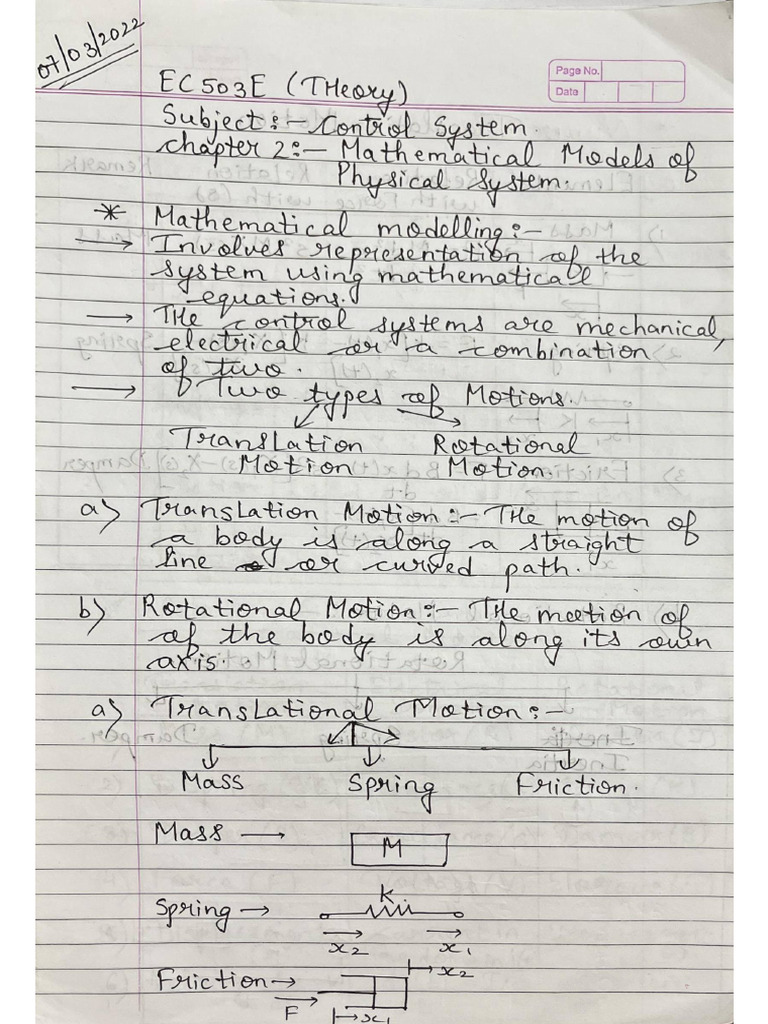 07/03/2022
Page No.
Date
EC503E (THeory)
Subject:- Control System.
chapter 2:- Mathematical Models of
Physical System.
* Mathematical modelling:-
→ Involves representation of the
system using mathematical
equations.
→ THe control systems are mechanical,
electrical or a combination
of two.
→ Two types of Motions.
Translation Rotational
Motion Motion
a) Translation Motion:- THe motion of
a body is along a straight
line or curved path.
b) Rotational Motion:- THe motion of
of the body is along its own
axis.
a) Translational Motion:-
Mass Spring Friction.
Mass → M
K
Spring →
x2 x1
Friction → x2
F x1